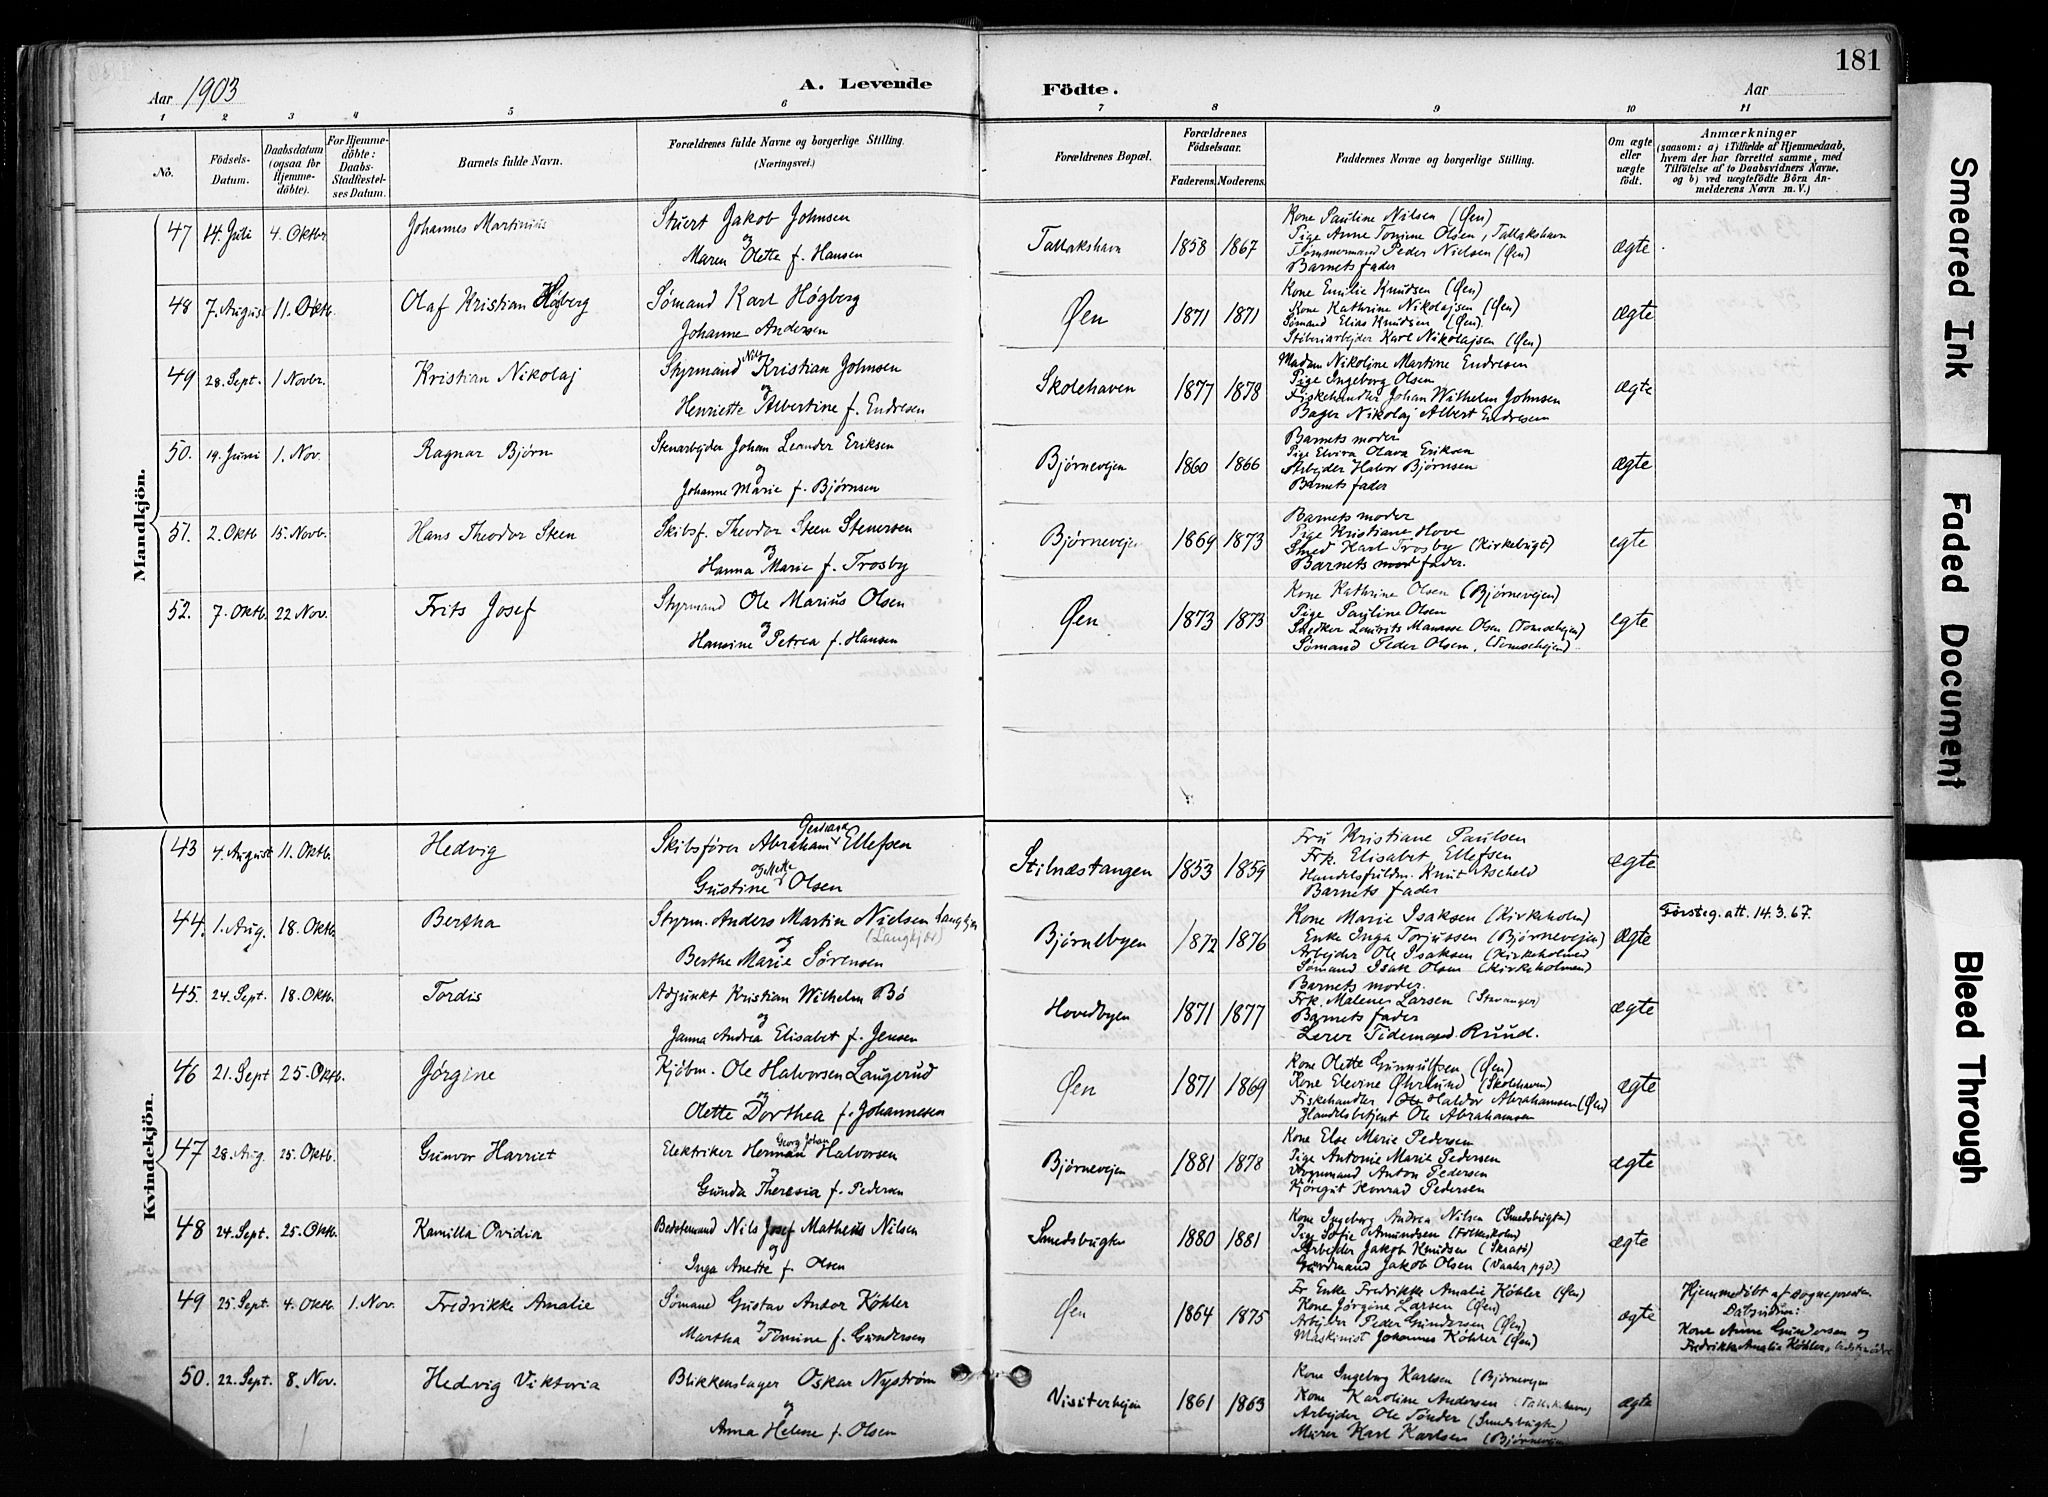 181
Aar 1903
A. Levende
Födte.
Aar
1 2 3 4 5 6 7 8 9 10 11
No.
Födsels-Datum.
Daabsdatum (ogsaa for Hjemmedöbte).
For Hjemmedöbte: Daabs-Stadfæstelses Datum.
Barnets fulde Navn.
Forældrenes fulde Navne og borgerlige Stilling. (Næringsvei.)
Forældrenes Bopæl.
Forældrenes Födselsaar.
Faderens. Moderens.
Faddernes Navne og borgerlige Stilling.
Om ægte eller uægte födt.
Anmærkninger
(saasom: a) i Tilfælde af Hjemmedaab, hvem der har forrettet samme, med Tilföielse af to Daabsvidners Navne, og b) ved uægtefödte Börn Anmelderens Navn m. V.)
Mandkjön.
47 14. Juli 4. Oktbr Johannes Martinius Stuert Jakob Johnsen
og
Maren Olette f. Hansen
Tallakshavn 1858 1867
Kone Pauline Nilsen (Øen)
Pige Anne Tomine Olsen, Tallakshavn
Tømmermand Peder Nielsen (Øen)
Barnets fader
ægte
48 7. August 11. Oktb. Olaf Kristian Høgberg Sømand Karl Høgberg
Johanne Andersen
Øen 1871 1871
Kone Emilie Knudsen (Øen)
Kone Kathrine Nikolajsen (Øen)
Sømand Elias Knudsen (Øen).
Sliberiarbejder Karl Nikolajsen (Øen)
ægte
49 28. Sept. 1 Novbr. Kristian Nikolaj Styrmand Nils Kristian Johnsen
og
Henriette Albertine f. Endresen
Skolehaven 1877 1878
Madam Nikoline Martine Endresen
Pige Ingeborg Olsen
Fiskehandler Johan Wilhelm Johnsen
Bager Nikolaj Albert Endresen
ægte
50. 19. Juni 1. Nov. Ragnar Bjørn Stenarbejder Johan Leander Eriksen
og
Johanne Marie f. Bjørnsen
Bjørnevejen 1860 1866
Barnets moder
Pige Elvira Olava Eriksen
Arbejder Halvor Bjørnsen
Barnets fader
ægte
51. 2. Oktb 15. Novb. Hans Theodor Steen Skibsf. Theodor Steen Stenersen
og
Hanna Marie f. Trosby
Bjørnevejen 1869 1873
Barnets moder
Pige Kristiane Hove
Smed Karl Trosby (Kirkebugt)
Barnets fader.
egte
52. 7. Oktb. 22 Nov. Frits Josef Styrmand Ole Marius Olsen
og
Hansine Petrea f. Hansen
Øen 1873 1873
Kone Kathrine Olsen (Bjørnevejen)
Pige Pauline Olsen
Snedker Laurits Manasse Olsen
Sømand Peder Olsen.
egte
Kvindekjön.
43 4. August 11. Oktb. Hedvig Skibsfører Abraham Ellefsen
og Mette
Gustine Olsen
Stilnæstangen 1853 1859
Fru Kristiane Paulsen
Frk. Elisabet Ellefsen
Handelsfuldm. Knut Ascheld
Barnets fader
ægte
44. 1. Aug. 18. Oktb. Bertha Styrm. Anders Martin Nielsen Langkjær
(Langkjær)
og
Berthe Marie Sørensen
Bjørnebyen 1872 1876
Kone Marie Isaksen (Kirkeholm)
Enke Inga Torjussen (Bjørnevejen)
Arbejder Ole Isaksen (Kirkeholmen)
Sømand Isak Olsen (Kirkeholmen)
ægte
Førsteg. att. 14.3.67.
45. 24. Sept. 18. Oktb. Tordis Adjunkt Kristian Wilhelm Bö
og
Janna Andrea Elisabet f. Jensen
Hovedbyen 1871 1877
Barnets moder.
Frk. Malene Larsen (Stavanger)
Barnets fader
Lærer Tidemand Ruud.
ægte
46 21. Sept 25. Oktb. Jørgine Kjøbm. Ole Halvorsen Laugerud
og
Olette Dorthea f. Johannesen
Øen 1871 1869
Kone Olette Gunnulfsen (Øen)
Kone Elevine Øhrlund (Skolehavn)
Fiskehandler Haldor Abrahamsen (Øen)
Handelsbetjent Ole Abrahamsen
ægte
47 28. Aug. 25. Oktb. Gunvor Harriet Elektriker Herman Georg Johan Halvorsen
og
Gunda Theresia f. Pedersen
Bjørnevejen 1881 1878
Kone Else Marie Pedersen
Pige Antonie Marie Pedersen
Vognmand Anton Pedersen
Kjøregut Konrad Pedersen
ægte
48 24. Sept. 25. Oktb. Kamilla Ovidia Bedstemand Nils Josef Matheus Nilsen
og
Inga Anette f. Olsen
Smedsbugten 1880 1881
Kone Ingeborg Andrea Nilsen (Smedsbugten)
Pige Sofie Amundsen
Arbejder Jakob Knudsen
Gaardmand Jakob Olsen (Vaaler pgd.)
ægte
49 25. Sept. 4. Oktb. 1. Nov. Fredrikke Amalie Sømand Gustav Andor Köhler
og
Martha Tomine f. Gundersen
Øen 1864 1875
Fr Enke Fredrikke Amalie Köhler (Øen)
Kone Jörgine Larsen (Øen)
Arbejder Peder Gundersen (Øen)
Maskinist Johannes Köhler (Øen)
ægte
Hjemmedöbt af sognepresten
Kone Anne Gundersen og
Fredrikke Amalie Köhler,
50. 22. Sept. 8. Nov. Hedvig Viktoria Blikkenslager Oskar Nyström
og
Anna Helene f. Olsen
1861 1863
Kone Ingeborg Karlsen (Bjørnevejen
Kone Karoline Andersen (Tallakshavn)
Arbejder Ole Tönder (Smedsbugten)
Murer Karl Karlsen (Bjørnevejen)
ægte
Smeared Ink
Faded Document
Bleed Through